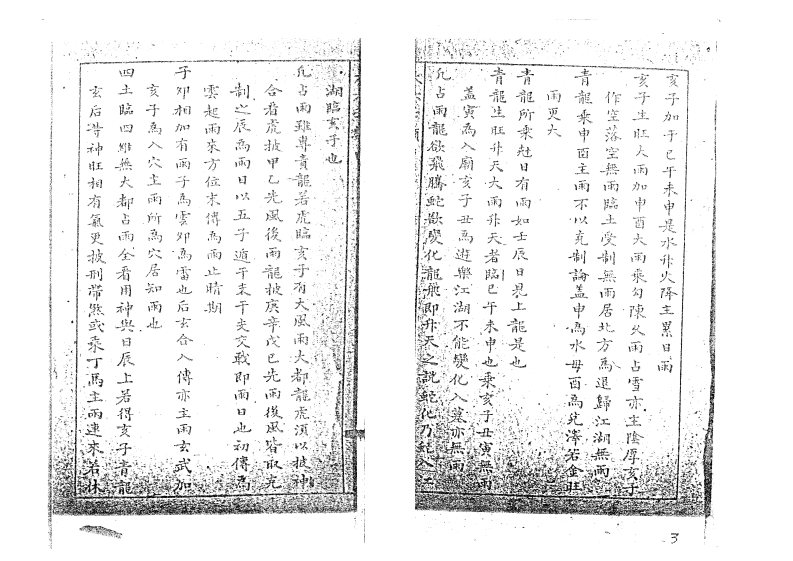 亥子加于巳午未申是水升火降主累日雨
亥子生旺大雨加申酉大雨乘勾陳久雨占雪亦主陰厚亥子
作空落空無雨臨土受制無雨居北方為退歸江湖無雨
青龍乘申酉主雨不以克制論蓋申為水母酉為兌澤若金旺
雨更大
青龍所乘尅日有雨如壬辰日見上龍是也
青龍生旺升天大雨升天者臨巳午未申也乘亥子丑寅無雨
蓋寅為入廟亥子丑為遊樂江湖不能變化入墓亦無雨
凡占雨龍欲飛騰蛇欲變化龍飛即升天之說蛇化乃蛇入江
湖臨亥子也
凡占雨雖專責龍若虎臨亥子有大風雨大都龍虎須以披神
合看虎披甲乙先風後雨龍披庚辛戊己先雨後風皆取克
制之辰為雨日以五子遁干支干支交戰即雨日也初傳為
雲起雨來方位末傳為雨止晴期
子卯相加有雨子為雲卯為雷也后玄合入傳亦主雨玄武加
亥子為入穴主雨所為穴居知雨也
四土臨四維無大都占雨全看用神與日辰上若得亥子青龍
玄后等神旺相有氣更披刑帶煞或乘丁馬主雨連來若休
3